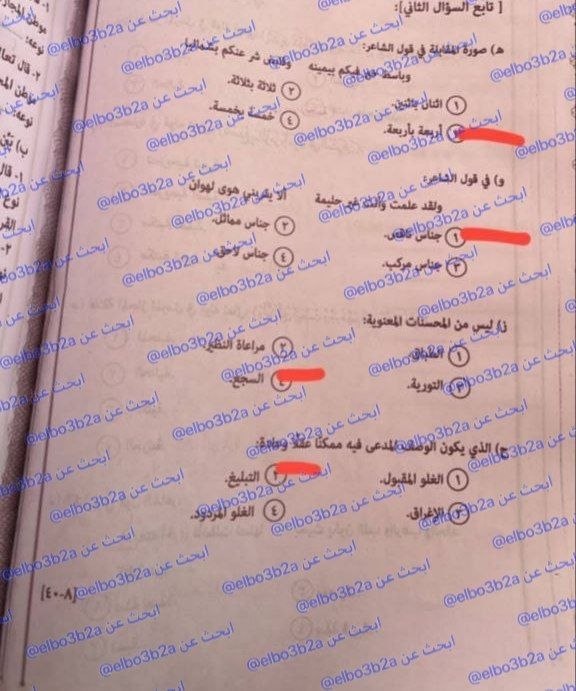 [ تابع السؤال الثاني]:
هـ) صورة المقابلة في قول الشاعر:
وباسط خير فيكم بيمينه وقابض شر عنكم بشماليا
١ اثنان باثنين.
٢ ثلاثة بثلاثة.
٣ أربعة بأربعة.
٤ خمسة بخمسة.
و) في قول الشاعر:
ولقد علمت وأنت غير حليمة ألا يقربني هوى لهوان
١ جناس ناقص.
٢ جناس مماثل.
٣ جناس مركب.
٤ جناس لاحق.
ز) ليس من المحسنات المعنوية:
١ الطباق
٢ مراعاة النظير.
٣ التورية.
٤ السجع.
ح) الذي يكون الوصف المدعى فيه ممكنًا عقلًا وعادة:
١ الغلو المقبول.
٢ التبليغ.
٣ الإغراق.
٤ الغلو المردود.
[٨-٤٠]
ابحث عن @elbo3b2a